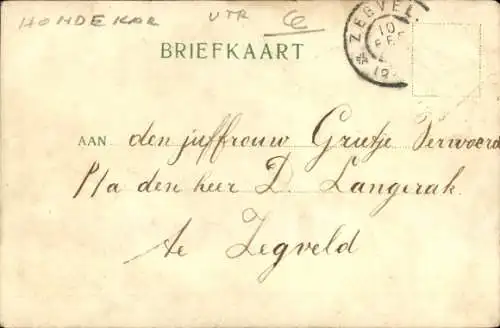 HONDEKAR UTR
BRIEFKAART
ZEGVEL
10
AAN den juffrouw Grietje Verwoerd
P/a den heer D. Langerak
te Zegveld